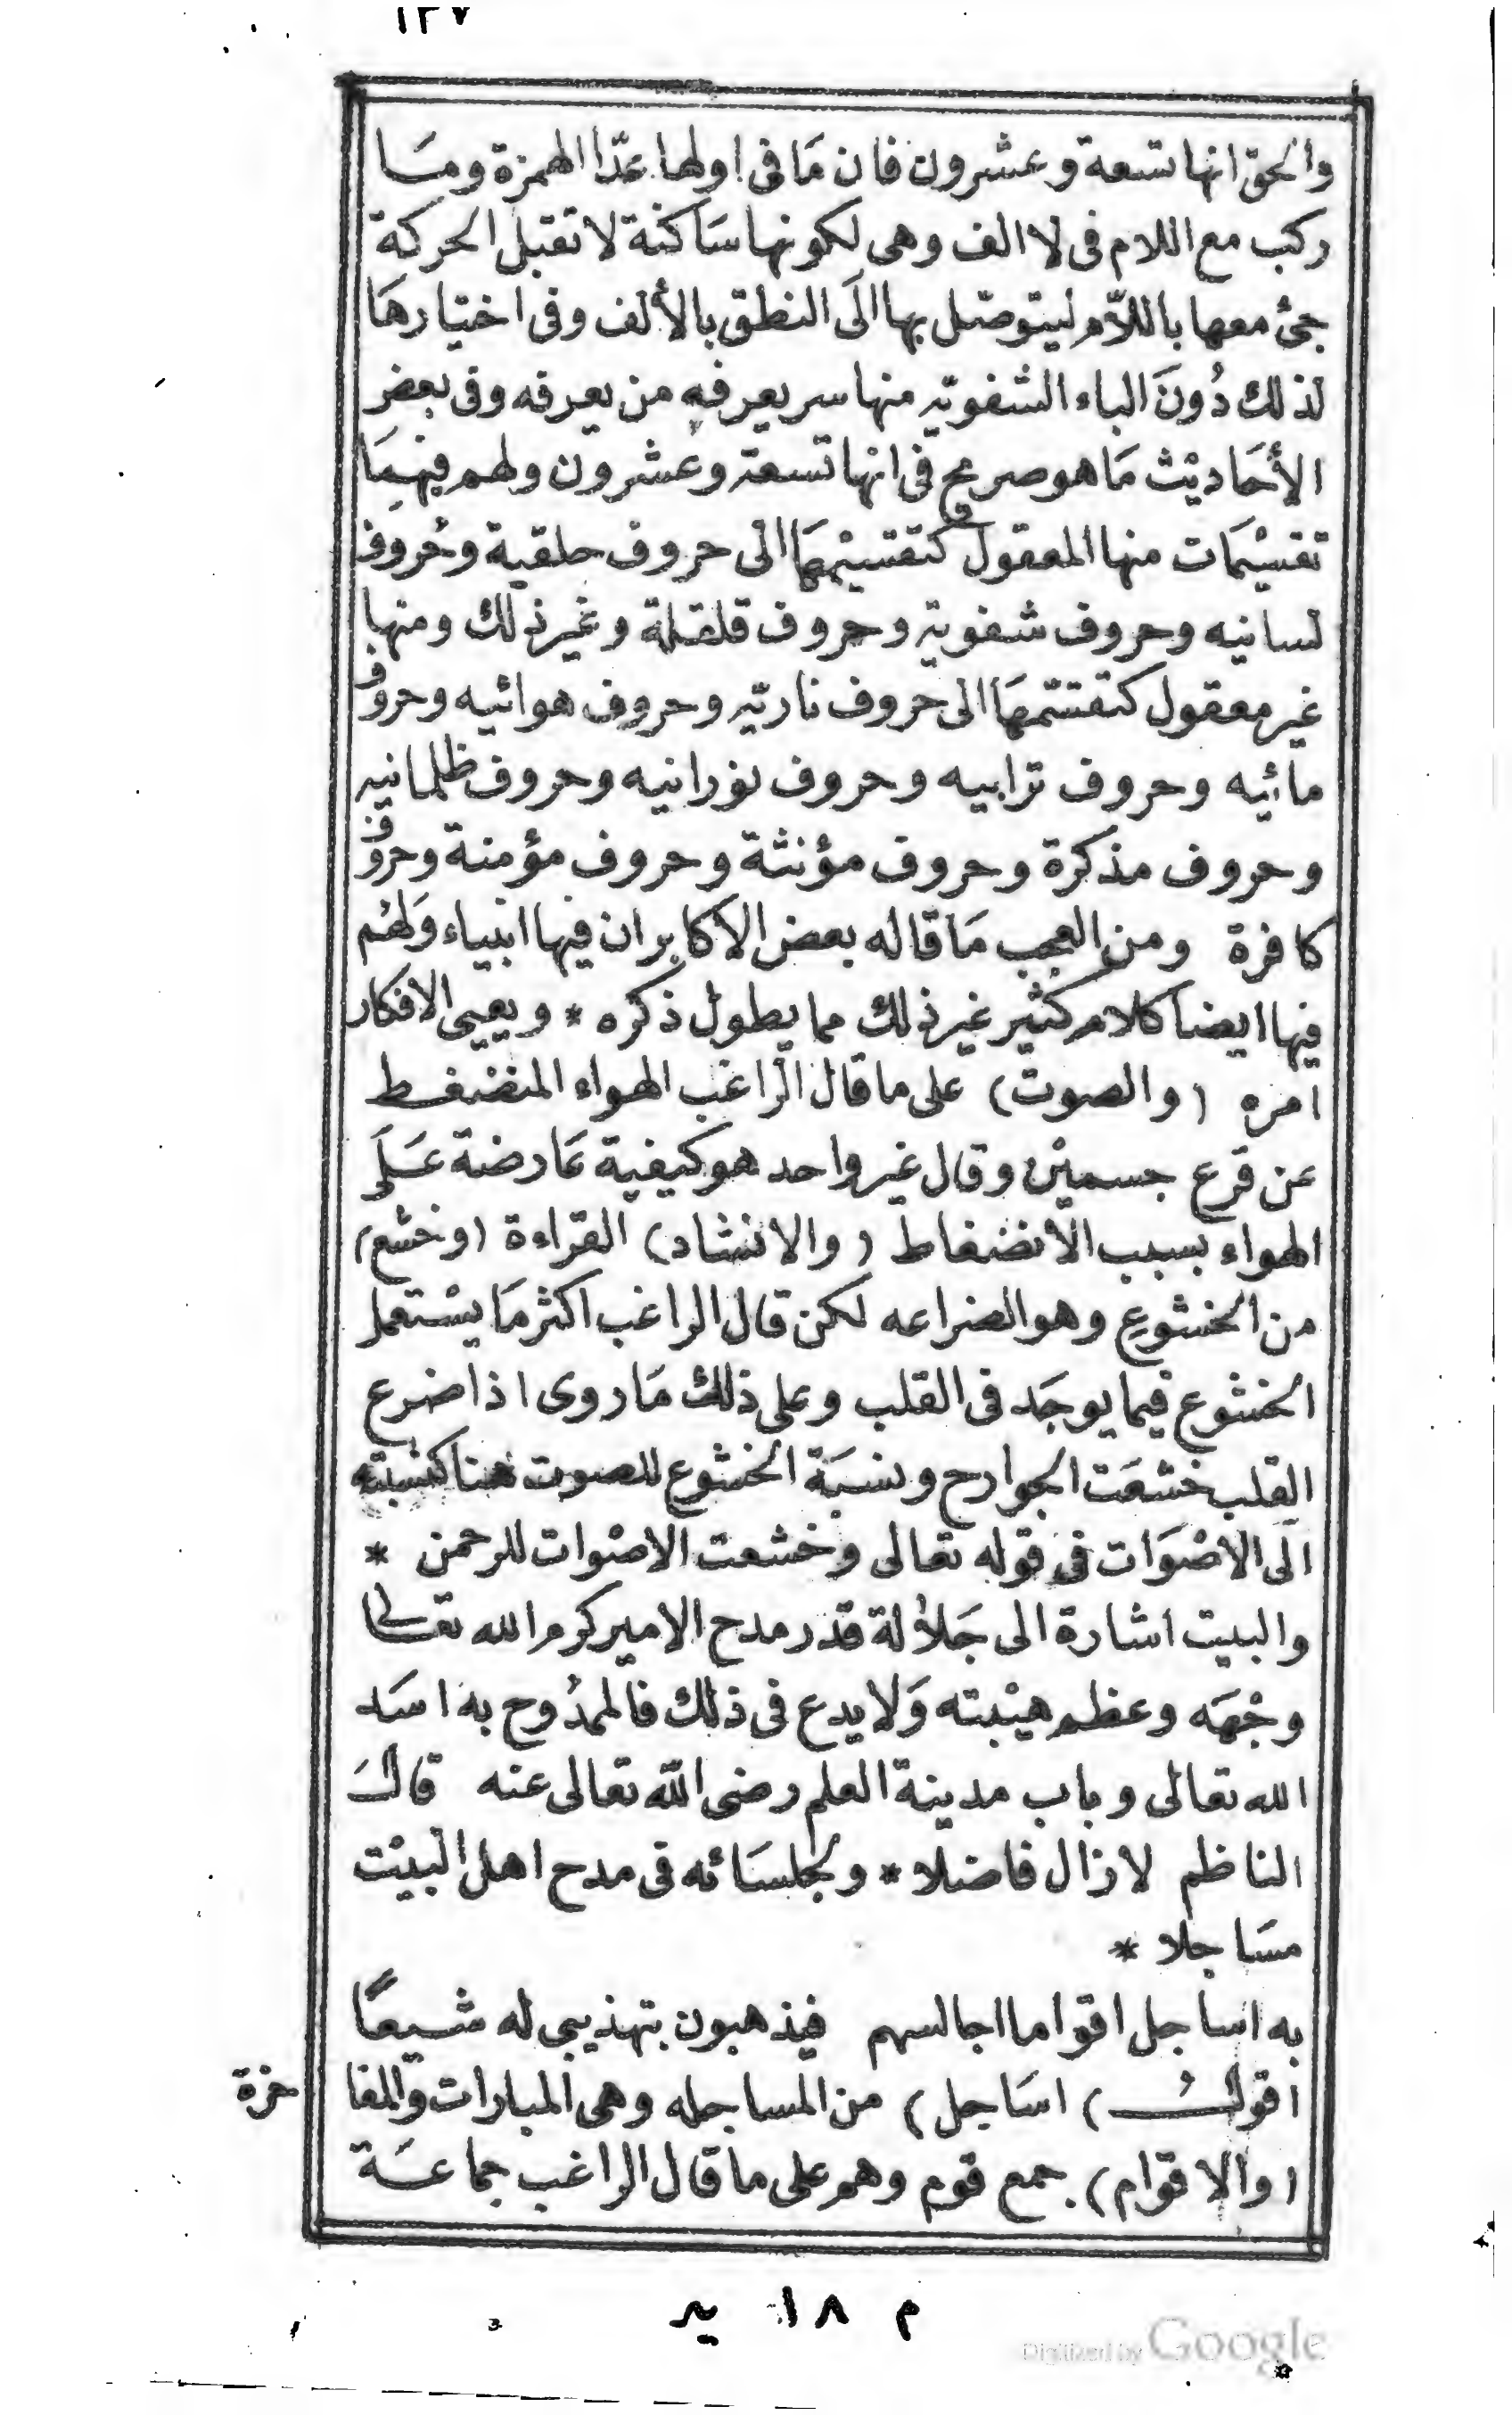 ١٣٧
والحق انها تسعة وعشرون فان مَا فى اولها عدّا الهمزة ومسَا
ركب مع اللام فى لا الف وهى لكونها سَاكنة لا تقبل الحركة
جئ معها باللاّم ليتوصّل بها الَى النطق بالألف وفى اختيارهَا
لذلك دُونَ الباء الشفويّه منها سر يعرفه من يعرفه وفى بعض
الأحَاديْث مَا هو صريح فى انها تسعة وعشرون ولهم فيهِمَا
تقسيْمَات منها المعقول كتقسيْمهَا الى حروف حلقية وحُروف
لسانيه وحروف شفوية وحروف قلقلة وغير ذلك ومنها
غير معقول كتقسّمهَا الى حروف ناريّه وحروف هوائيه وحروف
مائيه وحروف ترابيه وحروف نورانيه وحروف ظلمانيه
وحروف مذكرة وحروف مؤنثة وحروف مؤمنة وحروف
كافرة ومن العجب مَا قاله بعض الاكابر ان فيها انبياء وَلهُم
فيها ايضا كلام كثير غير ذلك مما يطول ذكره * ويعيى الافكار
امره (والصوت) على ما قال الراغب الهواء المنضغط
عن قرع جسميْن وقال غير واحد هو كيفية عَارضة عَلَى
الهواء بسبب الأنضغاط (والانشاد) القراءة (وخشع)
من الخشوع وهو الضراعه لكن قال الراغب اكثر مَا يسْتعمل
الخشوع فيما يوجَد فى القلب وعلى ذلك مَا روى اذا ضرع
القلب خشعَت الجوارح ونسبَة الخشوع للصوت هنا كنسبته
الَى الاصْوَات فى قوله تعالى وخشعت الاصْوات للرحمن *
والبيت اشارة الى جَلاُلة قدر مدح الامير كرم الله تعالى
وجْهَه وعظم هيْبته وَلا بدع فى ذلك فالممدُوح به اسَد
الله تعالى وباب مدينة العلم رضى الله تعالى عنه قالَ
الناظم لا زال فاضلا * ولجلسَائه فى مدح اهل البيْت
مسَاجلا *
به اساجل اقواما اجالسهم فيذهبون بتهذيبى له شيعًا
اقولُ (اسَاجل) من المساجله وهى المبارات والمفا
خرة
(والاقوام) جمع قوم وهم على ما قال الراغب جماعَة
م ١٨ يد
Digitized by Google